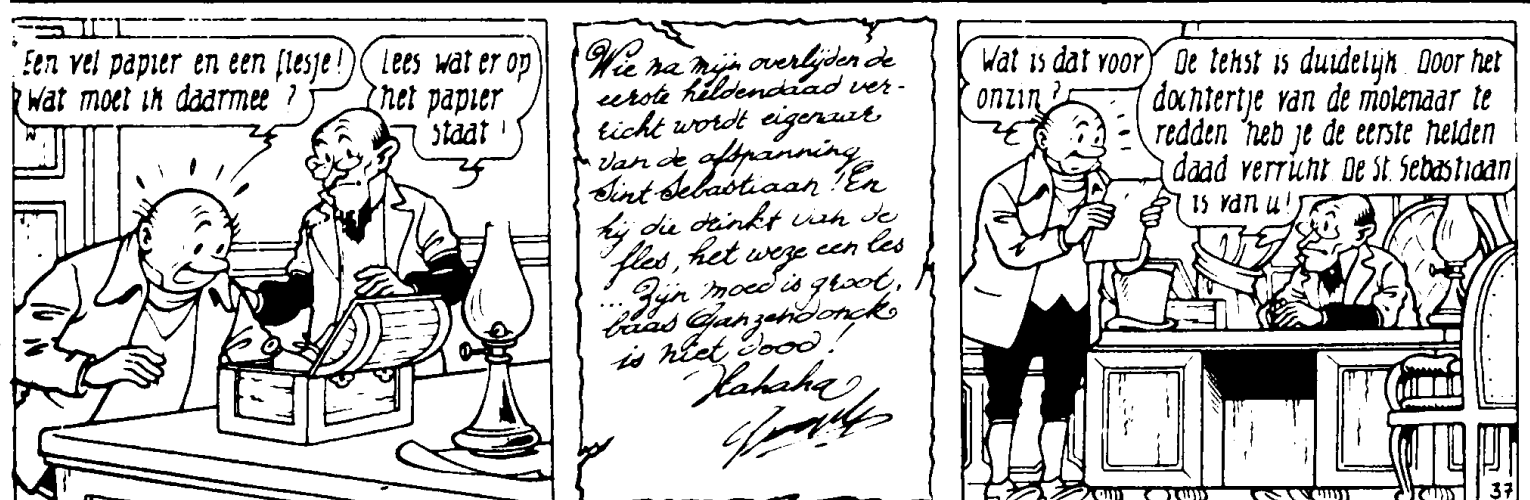 Een vel papier en een flesje!
Wat moet ik daarmee ?
Lees wat er op
het papier
staat !
Wie na mijn overlijden de
eerste heldendaad ver-
richt wordt eigenaar
van de afspanning
Sint-Sebastiaan! En
hij die drinkt van de
fles, het weze een les
... Zijn moed is groot,
baas Ganzendonck
is niet dood!
Hahaha
Wat is dat voor
onzin ?
De tekst is duidelijk. Door het
dochtertje van de molenaar te
redden heb je de eerste helden
daad verricht. De St. Sebastiaan
is van u!
37